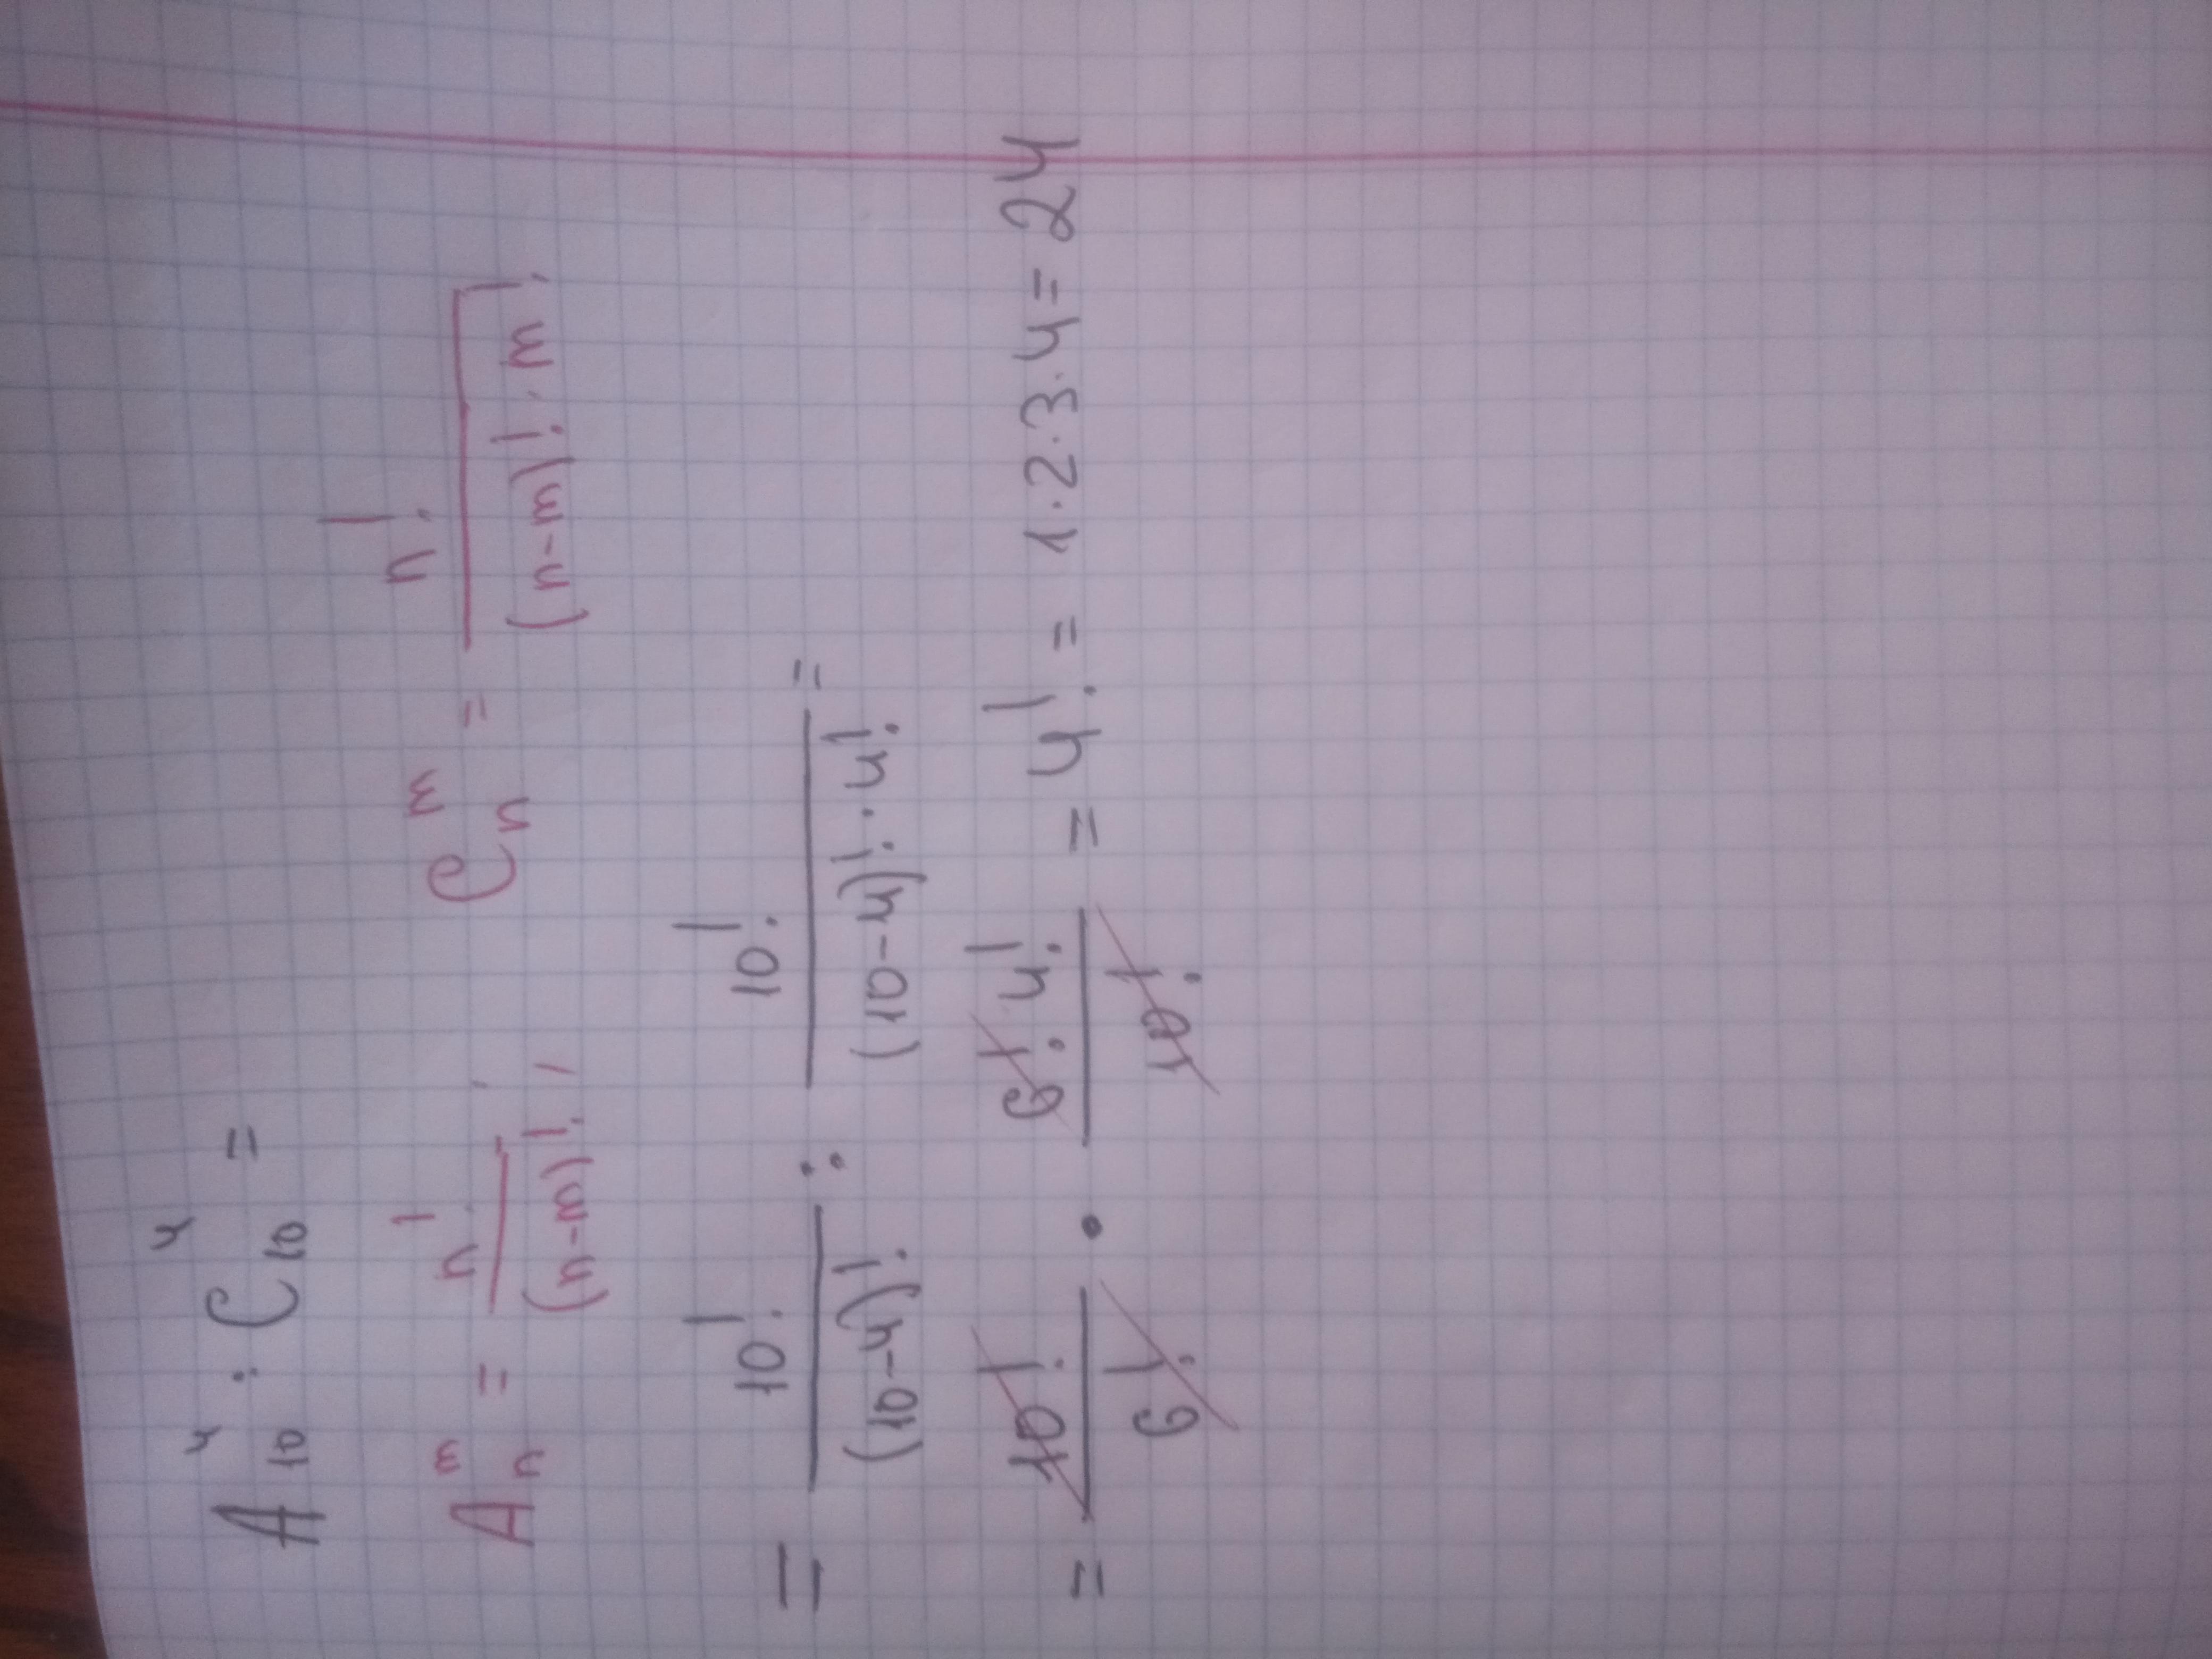 A₁₀⁴ : C₁₀⁴ =
Aₙᵐ = n! / (n-m)! , Cₙᵐ = n! / (n-m)! · m!
= 10! / (10-4)! : 10! / (10-4)! · 4! =
= 10! / 6! · 6! · 4! / 10! = 4! = 1·2·3·4 = 24